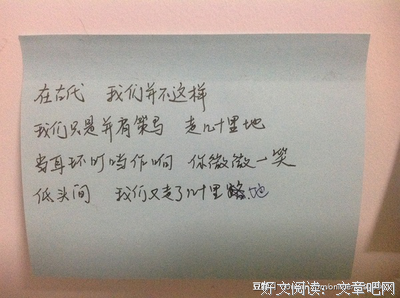 在古代 我们并不这样
我们只是并肩策马 走几十里地
当耳环叮当作响 你微微一笑
低头间 我们又走了几十里路地
好文阅读:文章吧网